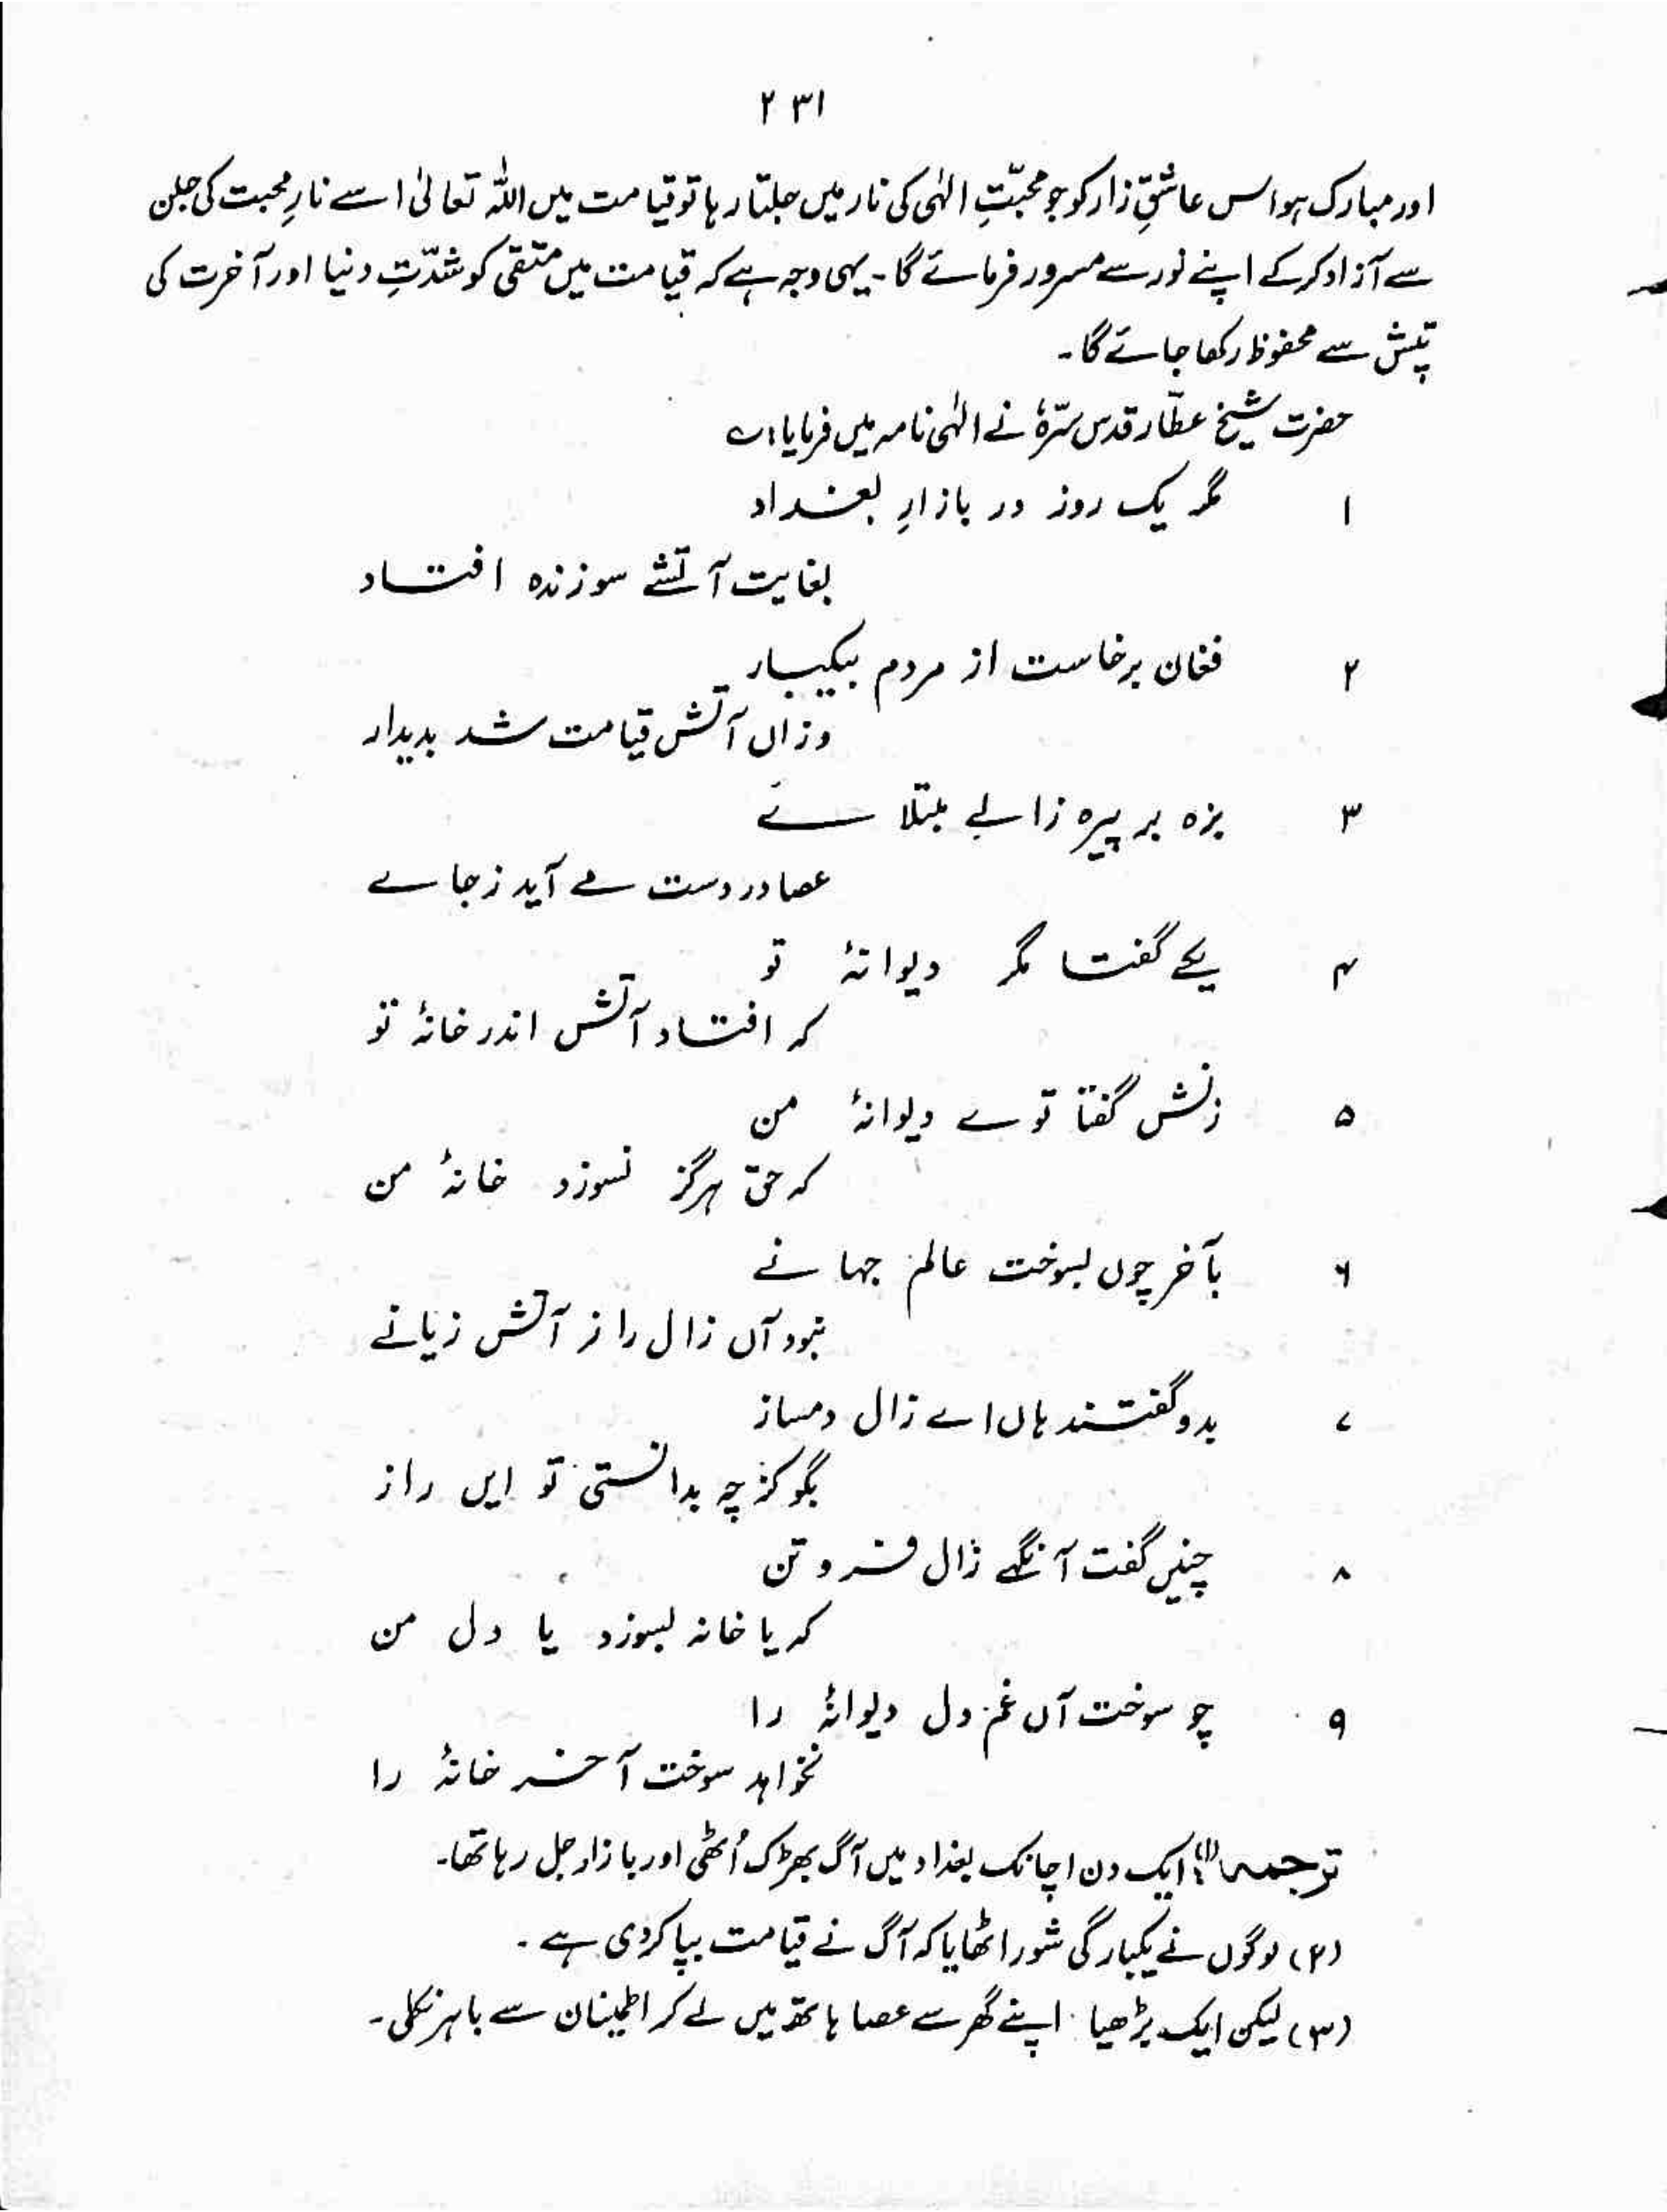 ۲۳۱
اور مبارک ہو اس عاشقِ زار کو جو محبّتِ الہٰی کی نار میں جلتا رہا تو قیامت میں اللہ تعالیٰ اسے نارِ محبت کی جلن
سے آزاد کرکے اپنے نور سے مسرور فرمائے گا۔ یہی وجہ ہے کہ قیامت میں متقی کو شدّتِ دنیا اور آخرت کی
تپش سے محفوظ رکھا جائے گا۔
حضرت شیخ عطّار قدس سرّہٗ نے الہٰی نامہ میں فرمایا ؎
۱ مگر یک روز در بازارِ بغداد
بغایت آتشے سوزندہ افتاد
۲ فغان برخاست از مردم بیکبار
وزاں آتش قیامت شد بدیدار
۳ بزہ بر پیرہ زالے مبتلائے
عصا در دست مے آید ز جاے
۴ یکے گفتا مگر دیوانۂ تو
کہ افتاد آتش اندر خانۂ تو
۵ زنش گفتا توے دیوانۂ من
کہ حق ہرگز نسوزد خانۂ من
۶ بآخر چوں بسوخت عالم جہانے
نبود آں زال را ز آتش زیانے
۷ بدو گفتند ہاں اے زال دمساز
بگو کز چہ بدانستی تو ایں راز
۸ چنیں گفت آنگہے زال فروتن
کہ یا خانہ بسوزد یا دل من
۹ چو سوخت آں غم دل دیوانۂ را
نخواہد سوخت آخر خانۂ را
ترجمہ (۱): ایک دن اچانک بغداد میں آگ بھڑک اُٹھی اور بازار جل رہا تھا۔
(۲) لوگوں نے یکبارگی شور اٹھایا کہ آگ نے قیامت بپا کردی ہے۔
(۳) لیکن ایک بڑھیا اپنے گھر سے عصا ہاتھ میں لے کر اطمینان سے باہر نکلی۔